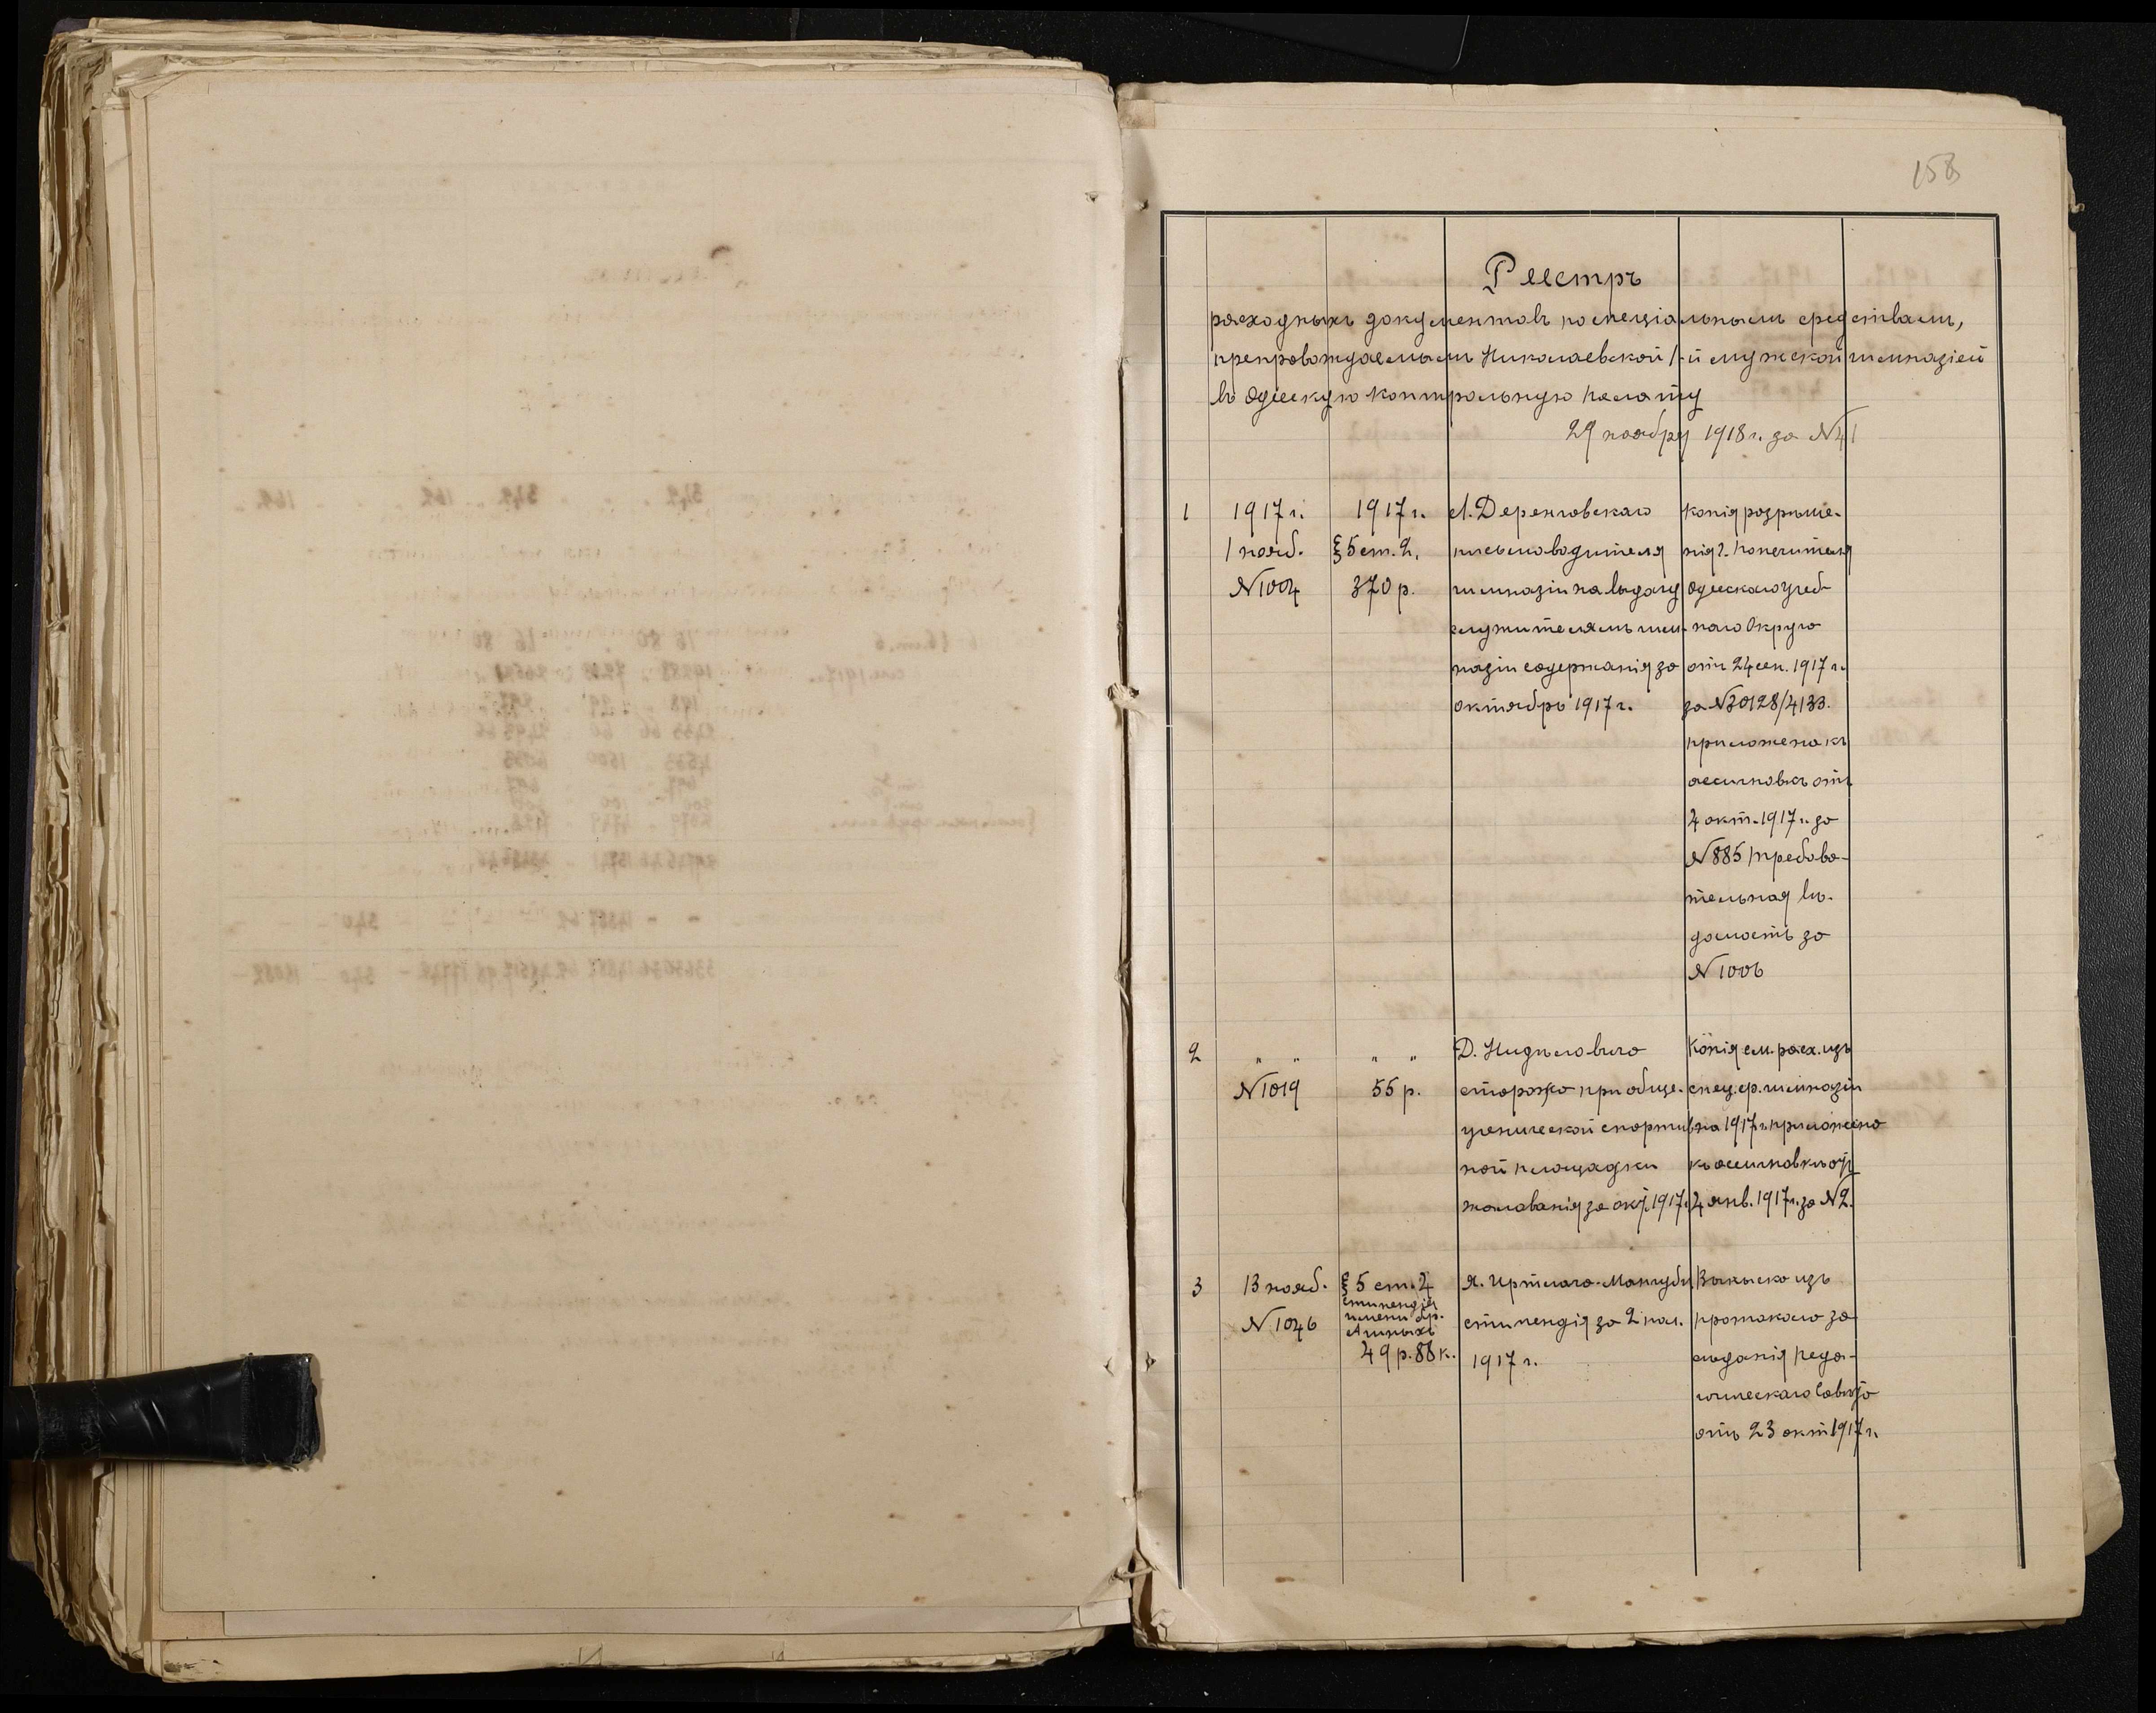 158
Реестръ
расходныхъ документовъ по спеціальнымъ средствамъ,
препровождаемымъ Николаевской 1-й мужской гимназіей
въ Одесскую Контрольную Палату
29 ноября 1918 г. за №41
1
1917 г.
1 нояб.
№1004
1917 г.
§5 ст. 2.
370 р.
письмоводителя
гимназіи на выдачу
служителямъ гим-
назіи содержанія за
октябрь 1917 г.
Копія разрѣше-
нія г. Попечителя
Одесскаго Учеб-
наго Округа
отъ 24 сен. 1917 г.
за №30128/4133.
приложена къ
ассигновкѣ отъ
4 окт. 1917 г. за
№885 Требова-
тельная вѣ-
домость за
№1006
2
" "
№1019
" "
55 р.
сторожа при обще-
ученической спортив-
ной площадки
жалованія за окт. 1917 г.
Копія см. расх. изъ
спец. ср. гимназіи
на 1917 г. приложена
къ ассигновкѣ отъ
4 янв. 1917 г. за №2.
3
13 нояб.
№1046
§5 ст. 4
стипендія
имени др.
49 р. 88 к.
стипендія за 2 пол.
1917 г.
Выписка изъ
протокола за-
сѣданія Педа-
гогическаго Совѣта
отъ 23 окт 1917 г.